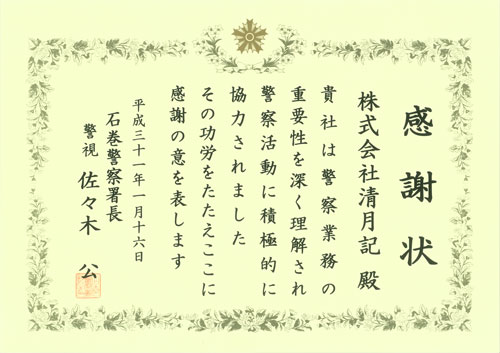 感謝状
株式会社清月記 殿
貴社は警察業務の
重要性を深く理解され
警察活動に積極的に
協力されました
その功労をたたえここに
感謝の意を表します
平成三十一年一月十六日
石巻警察署長
警視 佐々木 公